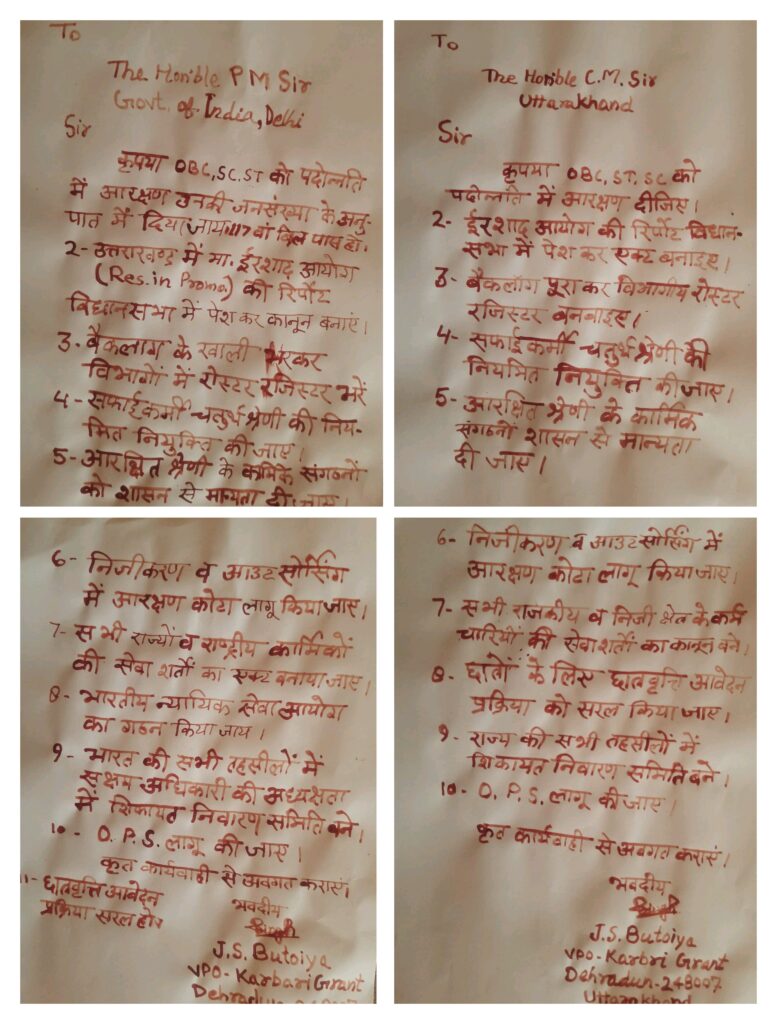 To
The Honible PM Sir
Govt. of India, Delhi
Sir
कृपया OBC, SC, ST को पदोन्नति
में आरक्षण उनकी जनसंख्या के अनु-
पात में दिया जाय 117 वां बिल पास हो.
2- उत्तराखण्ड में मा. ईरशाद आयोग
(Res. in Promo) की रिपोर्ट
विधानसभा में पेश कर कानून बनाएं।
3- बैकलाग के खाली भरकर
विभागों में रोस्टर रजिस्टर भरें
4- सफाईकर्मी चतुर्थ श्रेणी की निय-
मित नियुक्ति की जाए।
5- आरक्षित श्रेणी के कार्मिक संगठनों
को शासन से मान्यता दी जाए।
6- निजीकरण व आउट सोर्सिंग
में आरक्षण कोटा लागू किया जाए।
7- सभी राज्यों व राष्ट्रीय कार्मिकों
की सेवा शर्तो का एक्ट बनाया जाए।
8- भारतीय न्यायिक सेवा आयोग
का गठन किया जाय।
9- भारत की सभी तहसीलों में
सक्षम अधिकारी की अध्यक्षता
में शिकायत निवारण समिति बने।
10- O. P. S. लागू की जाए।
कृत कार्यवाही से अवगत कराएं।
11- छात्रवृत्ति आवेदन
प्रक्रिया सरल हो।
भवदीय
Singh
J.S. Butoiya
VPO- Karbari Grant
Dehradun-248007
To
The Honible C.M. Sir
Uttarakhand
Sir
कृपया OBC, ST, SC को
पदोन्नति में आरक्षण दीजिए।
2- ईरशाद आयोग की रिर्पोट विधान-
सभा में पेश कर एक्ट बनाइए।
3- बैकलॉग पूरा कर विभागीय रोस्टर
रजिस्टर बनवाइए।
4- सफाईकर्मी चतुर्थ श्रेणी की
नियमित नियुक्ति की जाए।
5- आरक्षित श्रेणी के कार्मिक
संगठनों शासन से मान्यता
दी जाए।
6- निजीकरण व आउट सोर्सिंग में
आरक्षण कोटा लागू किया जाए।
7- सभी राजकीय व निजी क्षेत्र के कर्म
चारियों की सेवा शर्तो का कानून बने।
8- छात्रों के लिए छात्रवृत्ति आवेदन
प्रक्रिया को सरल किया जाए।
9- राज्य की सभी तहसीलों में
शिकायत निवारण समिति बने।
10- O. P. S. लागू की जाए।
कृत कार्यवाही से अवगत कराएं।
भवदीय
Singh
J.S. Butoiya
VPO- Karbri Grant
Dehradun-248007
Uttarakhand